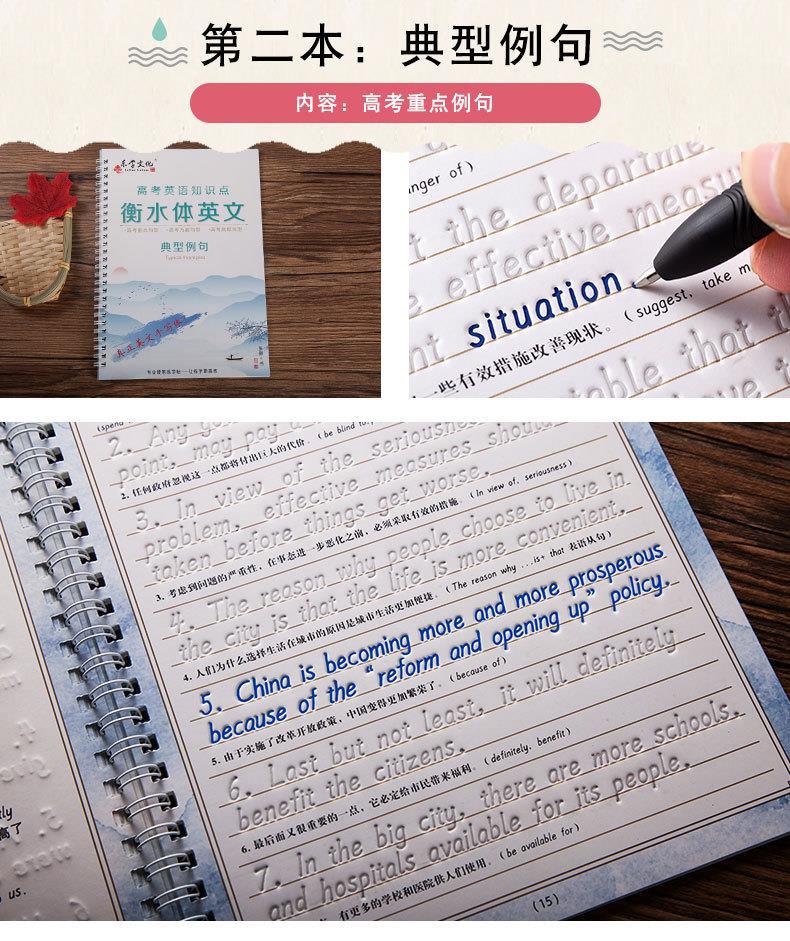 第二本：典型例句
内容：高考重点例句
东字文化
高考英语知识点
衡水体英文
·高考重点句型 ·高考万能句型 ·高考高频句型
典型例句
Typical examples
真正英文手写体
专业硬笔练字帖——让练字更高效
anger of)
t the departme
e effective measu
nt situation.
一些有效措施改善现状。(suggest, take m
table that th
(spend
2. Any go
point, may pay a
2. 任何政府忽视这一点都将付出巨大的代价。(be blind to,
3. In view of the seriousnes
problem, effective measures should
taken before things get worse.
3. 考虑到问题的严重性，在事态进一步恶化之前，必须采取有效的措施。(In view of, seriousness)
4. The reason why people choose to live in
the city is that the life is more convenient.
4. 人们为什么选择生活在城市的原因是城市生活更加便捷。(The reason why ...is+ that 表语从句)
5. China is becoming more and more prosperous
because of the “reform and opening up” policy.
5. 由于实施了改革开放政策，中国变得更加繁荣了。(because of)
6. Last but not least, it will definitely
benefit the citizens.
6. 最后而又很重要的一点，它必定给市民带来福利。(definitely, benefit)
7. In the big city, there are more schools.
and hospitals available for its people.
有更多的学校和医院供人们使用。(be available for)
(15)
tly
高了
o us.